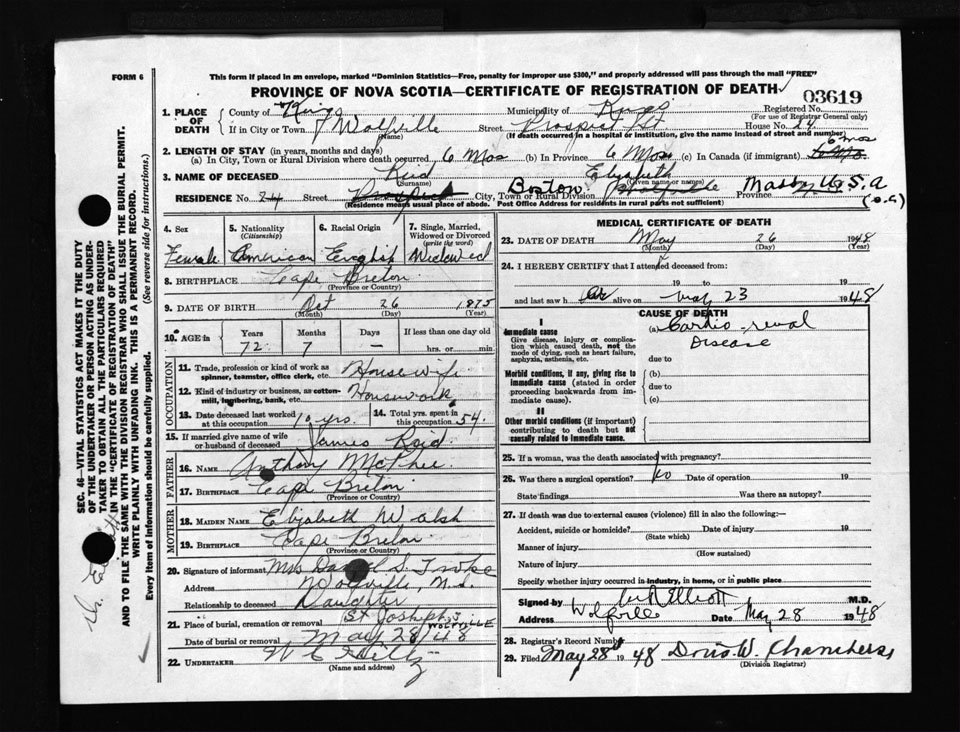 FORM 6
This form if placed in an envelope, marked "Dominion Statistics—Free, penalty for improper use $300," and properly addressed will pass through the mail "FREE"
PROVINCE OF NOVA SCOTIA—CERTIFICATE OF REGISTRATION OF DEATH
03619
1. PLACE OF DEATH
County of Kings Municipality of Kings Registered No.
(For use of Registrar General only)
If in City or Town Wolfville Street Prospect St. House No. 24
(Name) (If death occurred in a hospital or institution, give the name instead of street and number)
2. LENGTH OF STAY (in years, months and days) 6 mos
(a) In City, Town or Rural Division where death occurred 6 Mos (b) In Province 6 Mos (c) In Canada (if immigrant)
3. NAME OF DECEASED Reid Elizabeth
(Surname) (Given name or names)
RESIDENCE No. 24 Street Prospect City, Town or Rural Division Boston Province Mass. U.S.A
(Residence means usual place of abode. Post Office Address for residents in rural parts not sufficient)
4. Sex 5. Nationality (Citizenship) 6. Racial Origin 7. Single, Married, Widowed or Divorced (write the word)
Female American English Widowed
8. BIRTHPLACE Cape Breton
(Province or Country)
9. DATE OF BIRTH Oct 26 1875
(Month) (Day) (Year)
10. AGE in Years Months Days If less than one day old
72 7 — hrs. or min.
OCCUPATION
11. Trade, profession or kind of work as spinner, teamster, office clerk, etc. Housewife
12. Kind of industry or business, as cotton-mill, lumbering, bank, etc. Housework
13. Date deceased last worked at this occupation 10 yrs. 14. Total yrs. spent in this occupation 54.
15. If married give name of wife or husband of deceased James Reid
FATHER
16. NAME Anthony McPhee
17. BIRTHPLACE Cape Breton
(Province or Country)
MOTHER
18. MAIDEN NAME Elizabeth Walsh
19. BIRTHPLACE Cape Breton
(Province or Country)
20. Signature of informant Mrs S.
Address Wolfville, N.S.
Relationship to deceased Daughter
21. Place of burial, cremation or removal St Joseph's WOLFVILLE
Date of burial or removal May 28/48
22. UNDERTAKER W C
(Name and address)
MEDICAL CERTIFICATE OF DEATH
23. DATE OF DEATH May 26 1948
(Month) (Day) (Year)
24. I HEREBY CERTIFY that I attended deceased from:
19 to 19
and last saw h er alive on May 23 1948
CAUSE OF DEATH
I
Immediate cause (a) Cardio-renal
Give disease, injury or complication which caused death, not the mode of dying, such as heart failure, asphyxia, asthenia, etc. Disease
due to
Morbid conditions, if any, giving rise to immediate cause (stated in order proceeding backwards from immediate cause). (b)
due to
(c)
II
Other morbid conditions (if important) contributing to death but not causally related to immediate cause.
25. If a woman, was the death associated with pregnancy?
26. Was there a surgical operation? No Date of operation 19
State findings Was there an autopsy?
27. If death was due to external causes (violence) fill in also the following:—
Accident, suicide or homicide? Date of injury 19
(State which)
Manner of injury
(How sustained)
Nature of injury
Specify whether injury occurred in industry, in home, or in public place
Signed by Elliott M.D.
Address Wolfville Date May 28 1948
28. Registrar's Record Number
29. Filed May 28th 1948 Doris W. Chambers
(Division Registrar)
SEC. 46—VITAL STATISTICS ACT MAKES IT THE DUTY
OF THE UNDERTAKER OR PERSON ACTING AS UNDER-
TAKER TO OBTAIN ALL THE PARTICULARS REQUIRED
IN THE "CERTIFICATE OF REGISTRATION OF DEATH"
AND TO FILE THE SAME WITH THE DIVISION REGISTRAR WHO SHALL ISSUE THE BURIAL PERMIT.
WRITE PLAINLY WITH UNFADING INK. THIS IS A PERMANENT RECORD.
Every item of information should be carefully supplied. (See reverse side for instructions.)